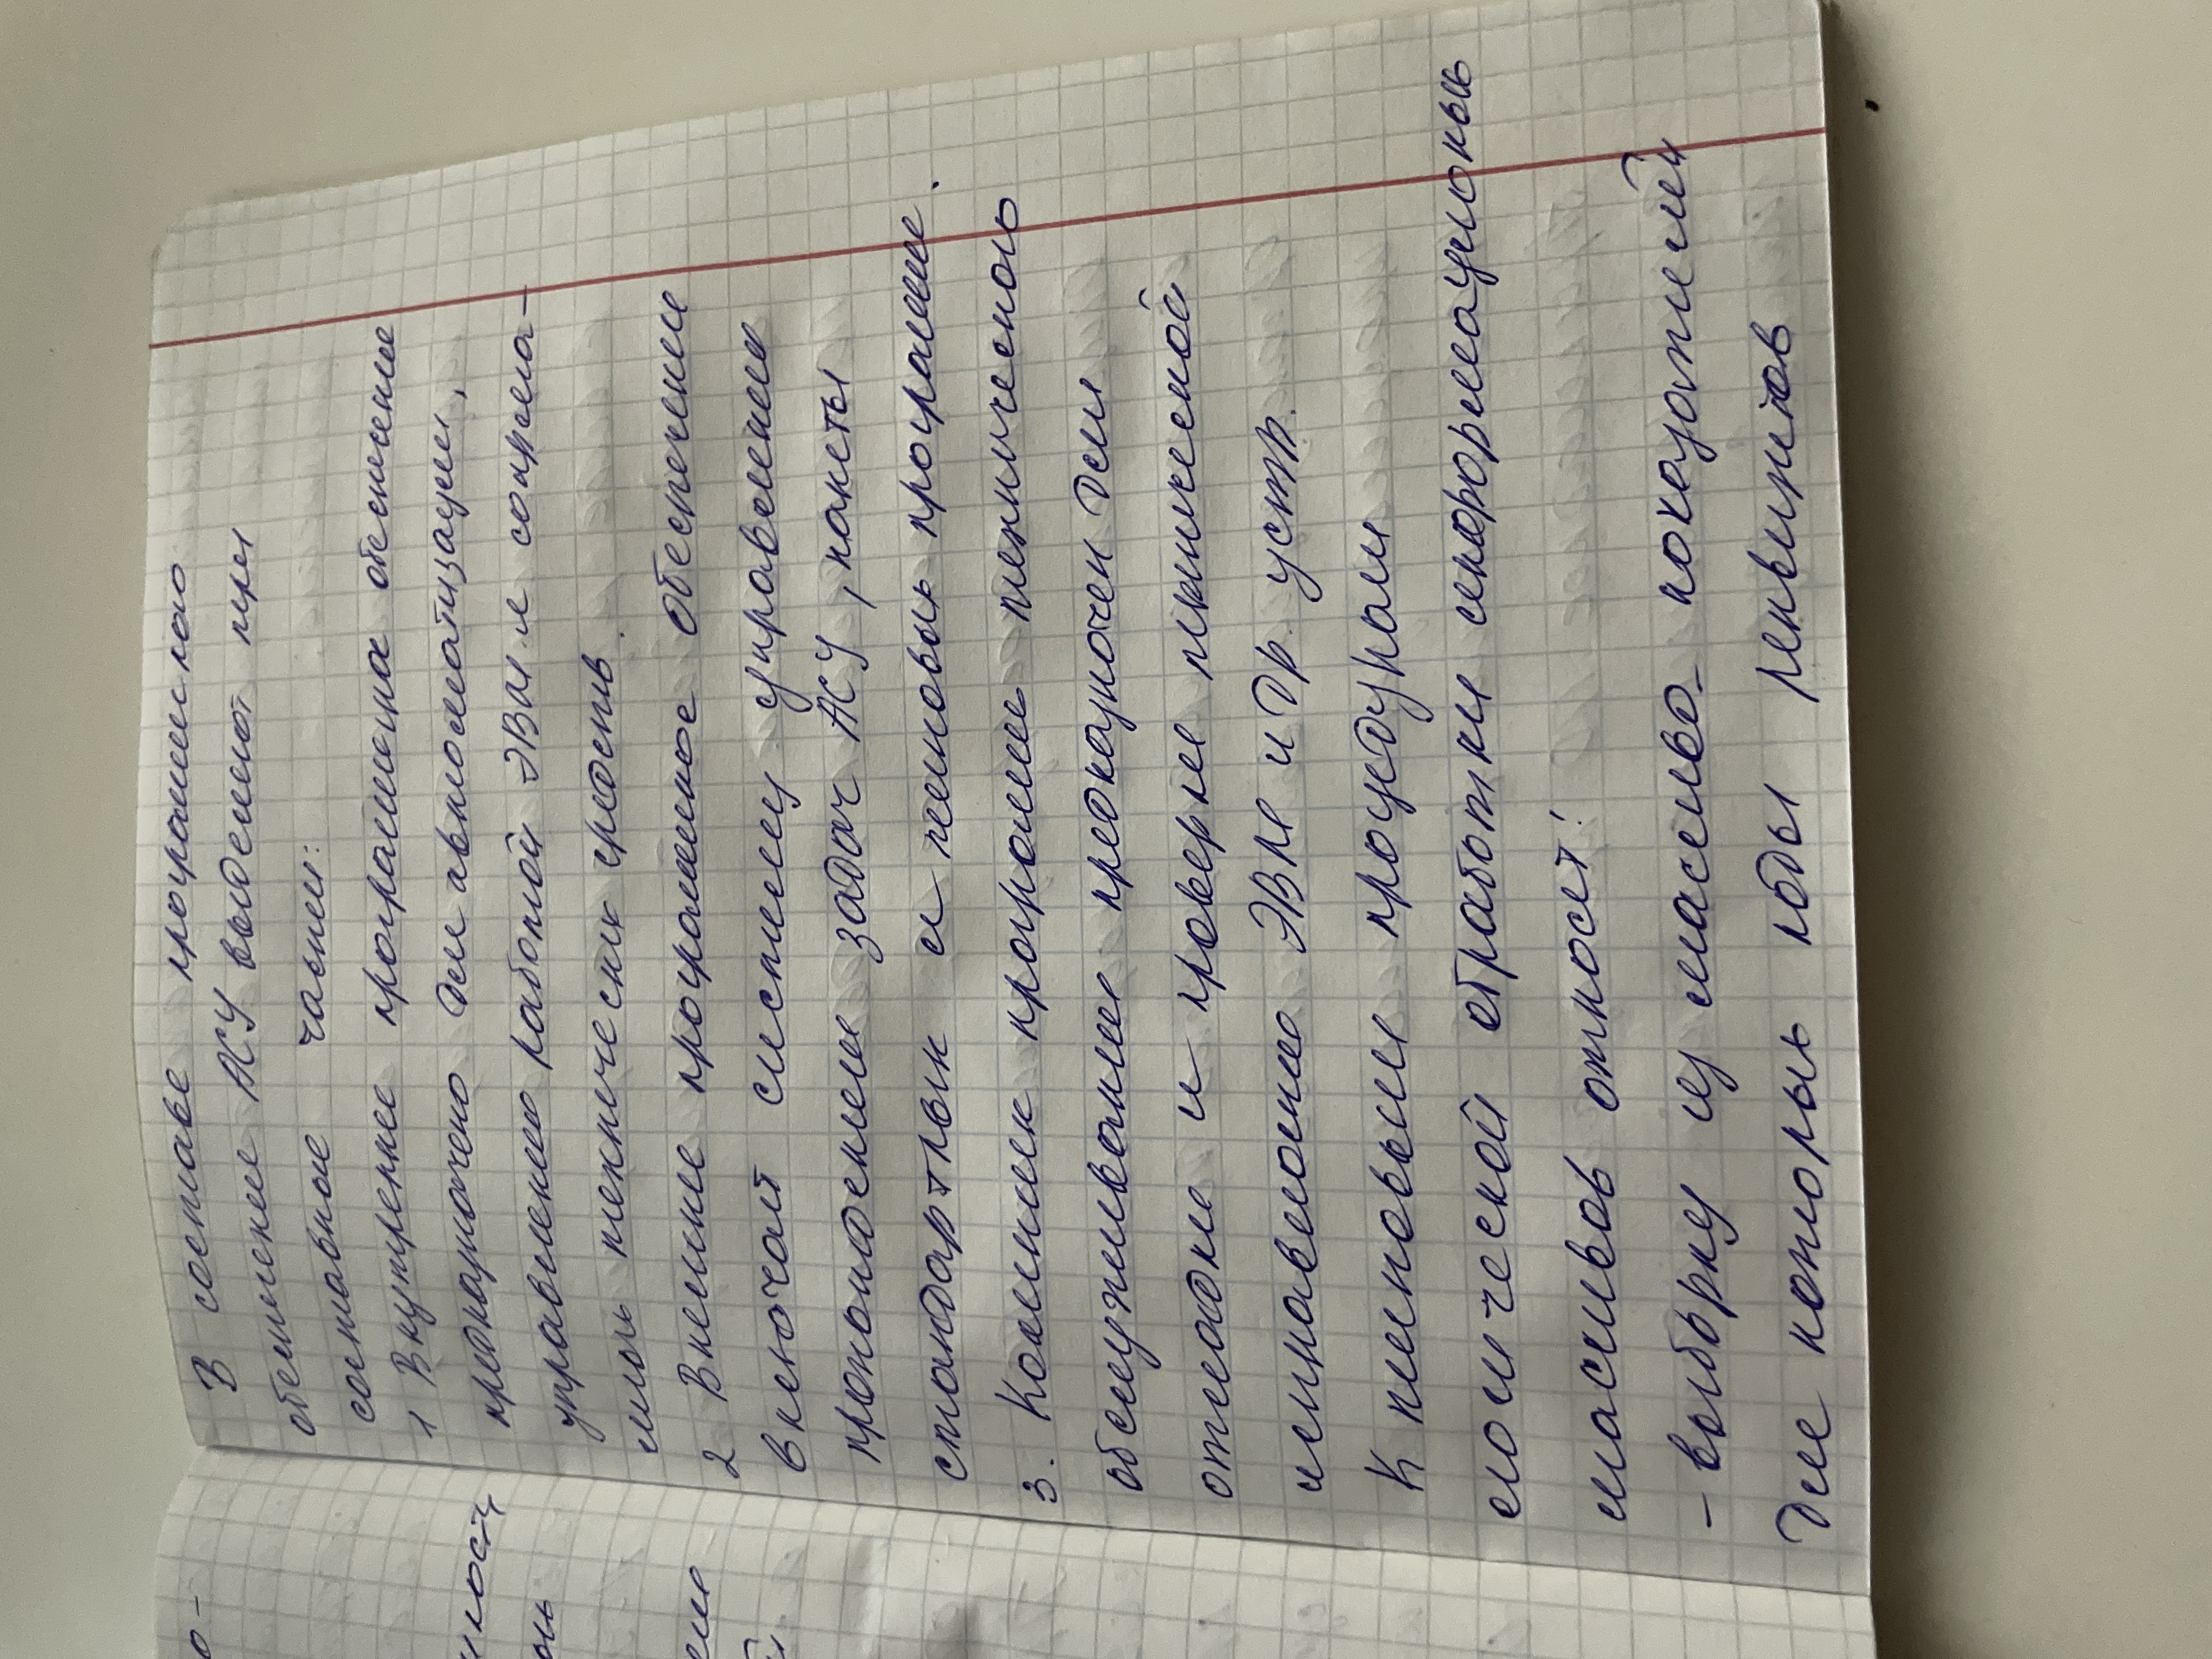 В составе програмного
обеспечение АСУ выделяют три
составные части:
1 Внутреннее програмное обеспечение
предназначено для автоматизации,
управлению работой ЭВМ и сопрела-
ми технических средств.
2 Внешнее програмное обеспечение
включает систему управлению
прохождение задач АСУ, пакеты
стандартных и типовых программ.
3. Комплекс программ технического
обслуживание предназначен для
отладке и проверке технической
исправлению ЭВМ и др. устр.
К типовыми процедурам
логической обработки информационных
массивов относят:
- выборку из массиво- показателей
Для которых коды реквизитов
ност